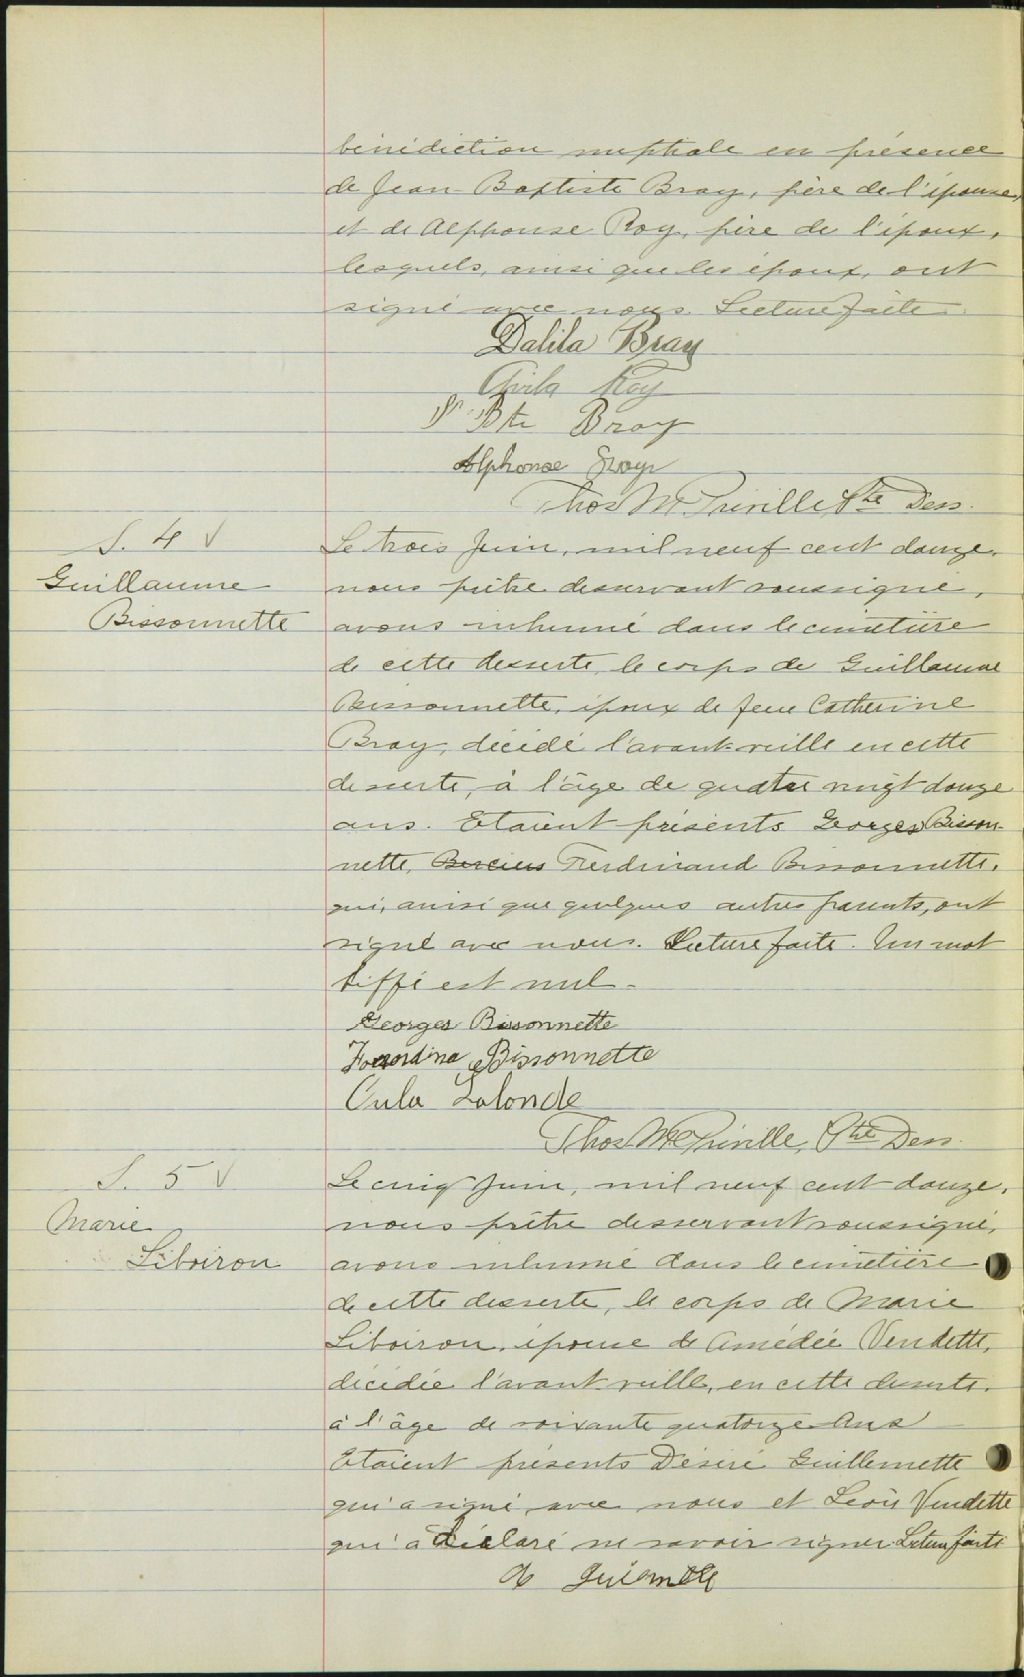 bénédiction nuptiale en présence
de Jean-Baptiste Bray, père de l'épouse,
et de Alphonse Roy, père de l'époux,
lesquels, ainsi que les époux, ont
signé avec nous. Lecture faite.
Dalila Bray
Avila Roy
Bte Bray
Alphonse Roy
Thos Ptre Dess.
S. 4 V
Guillaume
Bissonnette
Le trois Juin, mil neuf cent douze,
nous prêtre desservant soussigné,
avons inhumé dans le cimetière
de cette desserte, le corps de Guillaume
Bissonnette, époux de feue Catherine
Bray, décédé l'avant-veille en cette
desserte, à l'âge de quatre vingt douze
ans. Etaient présents Georges Bisson-
nette, Ferdinand Bissonnette,
qui, ainsi que quelques autres parents, ont
signé avec nous. Lecture faite. Un mot
biffé est nul.
Georges Bissonnette
Bissonnette
Lalonde
Thos Ptre Dess.
S. 5 V
Marie
Liboiron
Le cinq Juin, mil neuf cent douze,
nous prêtre desservant soussigné,
avons inhumé dans le cimetière
de cette desserte, le corps de Marie
Liboiron, épouse de Amédée Vendette,
décédée l'avant-veille, en cette desserte,
à l'âge de soixante quatorze ans
Etaient présents Désiré Guillemette
qui a signé avec nous et Léon Vendette
qui a déclaré ne savoir signer. Lecture faite